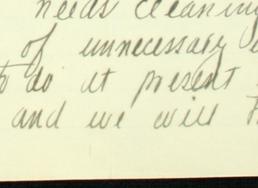 needs cleaning
of unnecessary
to do at present
and we will